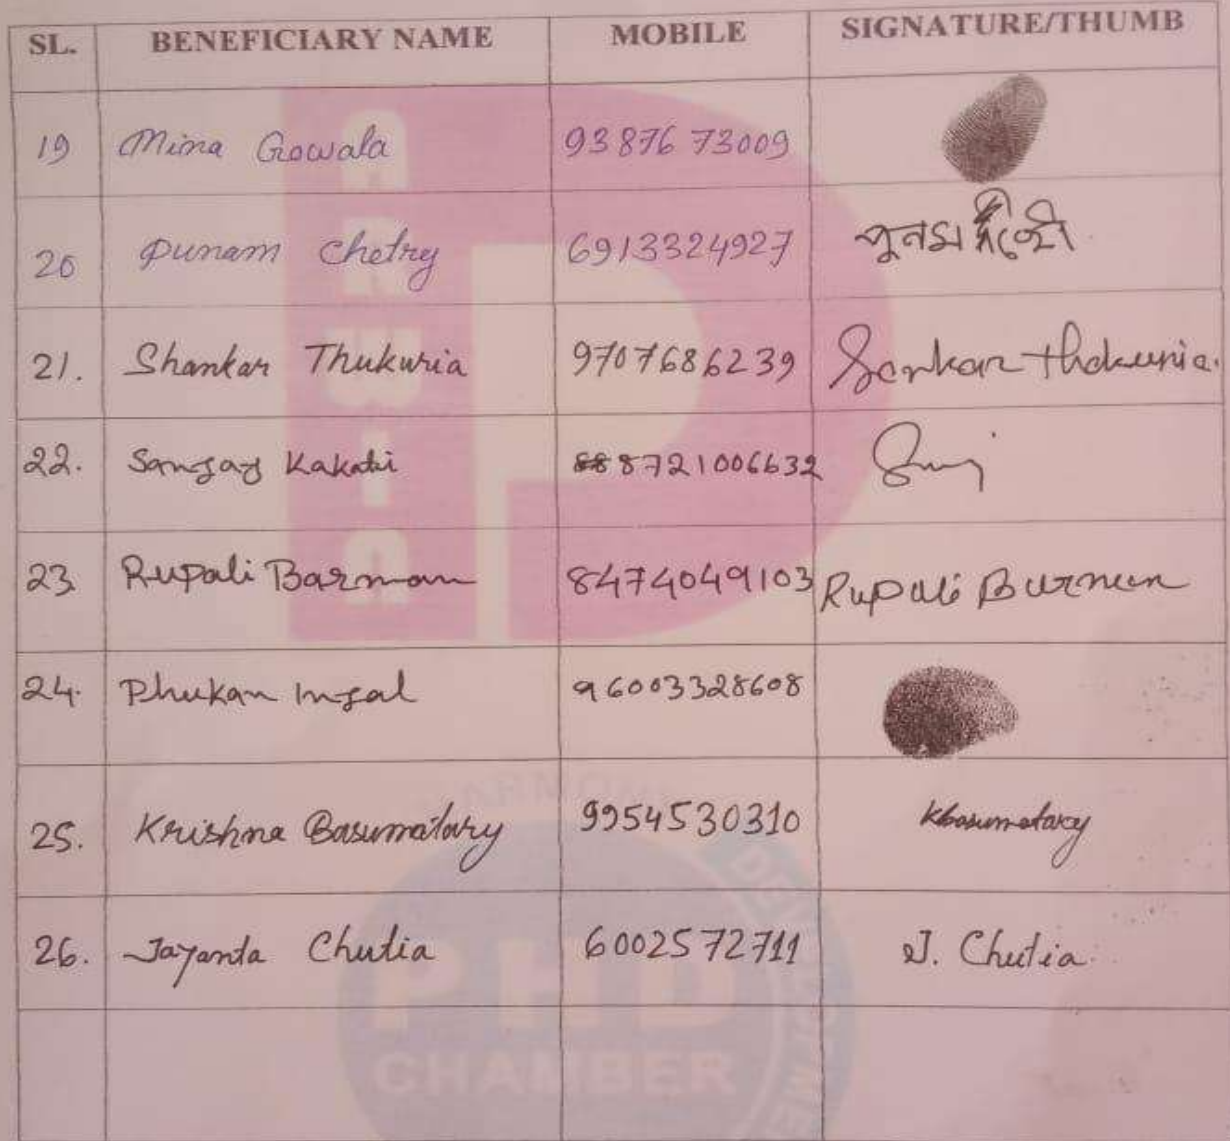 SL. BENEFICIARY NAME MOBILE SIGNATURE/THUMB
19 Mina Gowala 93876 73009
20 Punam Chetry 6913324927 পুনম
21. Shankar Thukuria 9707686239 Sankar thakuria.
22. Sanjay Kakati 8721006632
23 Rupali Barman 8474049103 Rupali Burmen
24. Phukan Injal 96003328608
25. Krishna Basumatary 9954530310 Kbasumatary
26. Jayanta Chutia 6002572711 J. Chutia.
PHD
CHAMBER